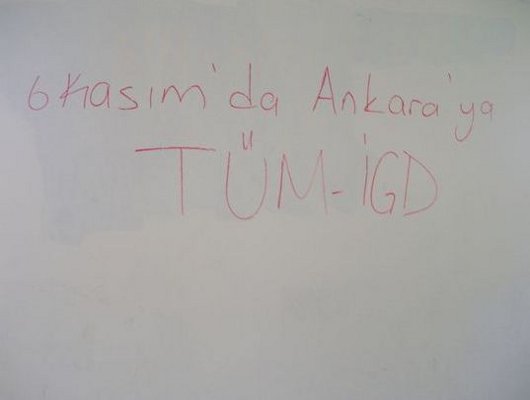 6 Kasım'da Ankara'ya
TÜM-İGD